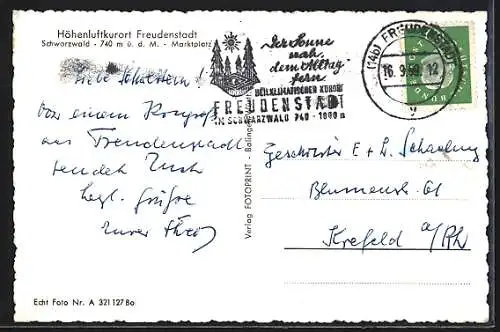 Höhenluftkurort Freudenstadt
Schwarzwald - 740 m ü. d. M. - Marktplatz
Von einem Kongreß
aus Freudenstadt
sendet Euch
hzgl. Grüße
Euer Theo
Echt Foto Nr. A 321 127 Bo
Verlag FOTOPRINT - Balingen
Der Sonne
nah,
dem Alltag
fern
HEILKLIMATISCHER KURORT
FREUDENSTADT
IM SCHWARZWALD 740 - 1000 m
(14b) FREUDENSTADT
16.9.59 12
y
DEUTSCHE BUNDESPOST
Geschwister E + L
Blumenstr. 61
Krefeld a/Rh